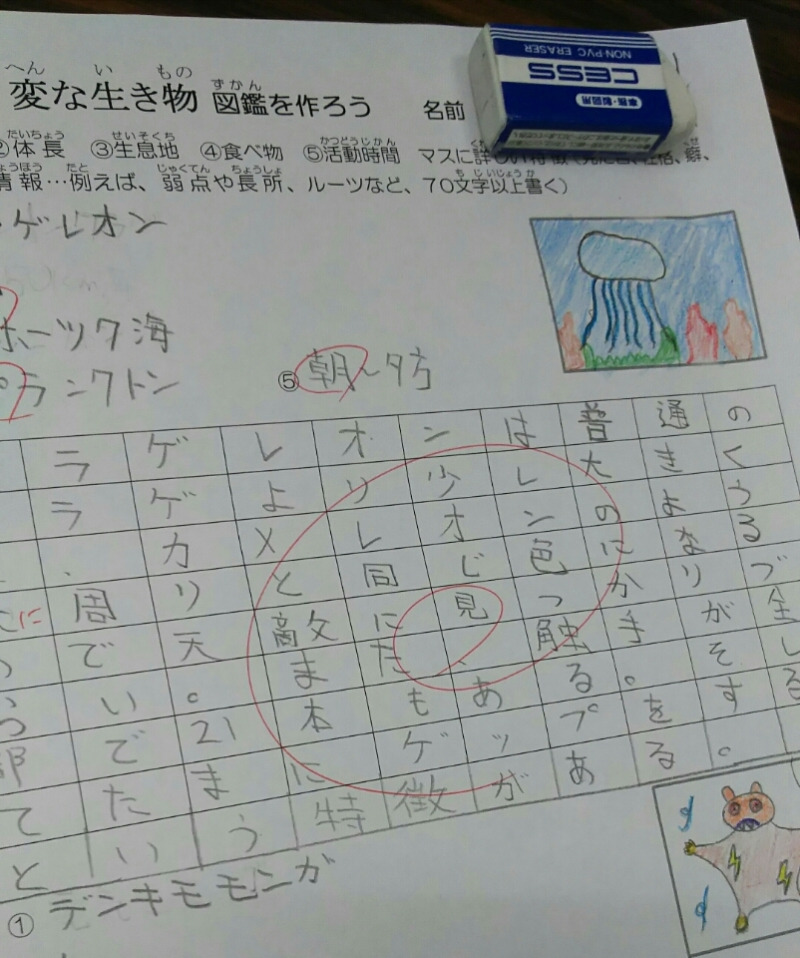 変な生き物図鑑を作ろう 名前
へん い もの ずかん
CESS
NON-PVC ERASER
②体長 ③生息地 ④食べ物 ⑤活動時間 マスに詳しい特徴
たいちょう せいそくち かつどうじかん
情報…例えば、弱点や長所、ルーツなど、70文字以上書く）
じょうほう たと じゃくてん ちょうしょ もじいじょうか
ゲレオン
ホーツク海
プランクトン
⑤朝~夕方
ラゲレオンは普通の
ラゲより少し大きく
カメレオンのような
周りと同じ色になる
で天敵に見つかりづ
い。また、触手が全
で21本もある。そし
たまにゲップをする
いう特徴がある。
①デンキモモンガ